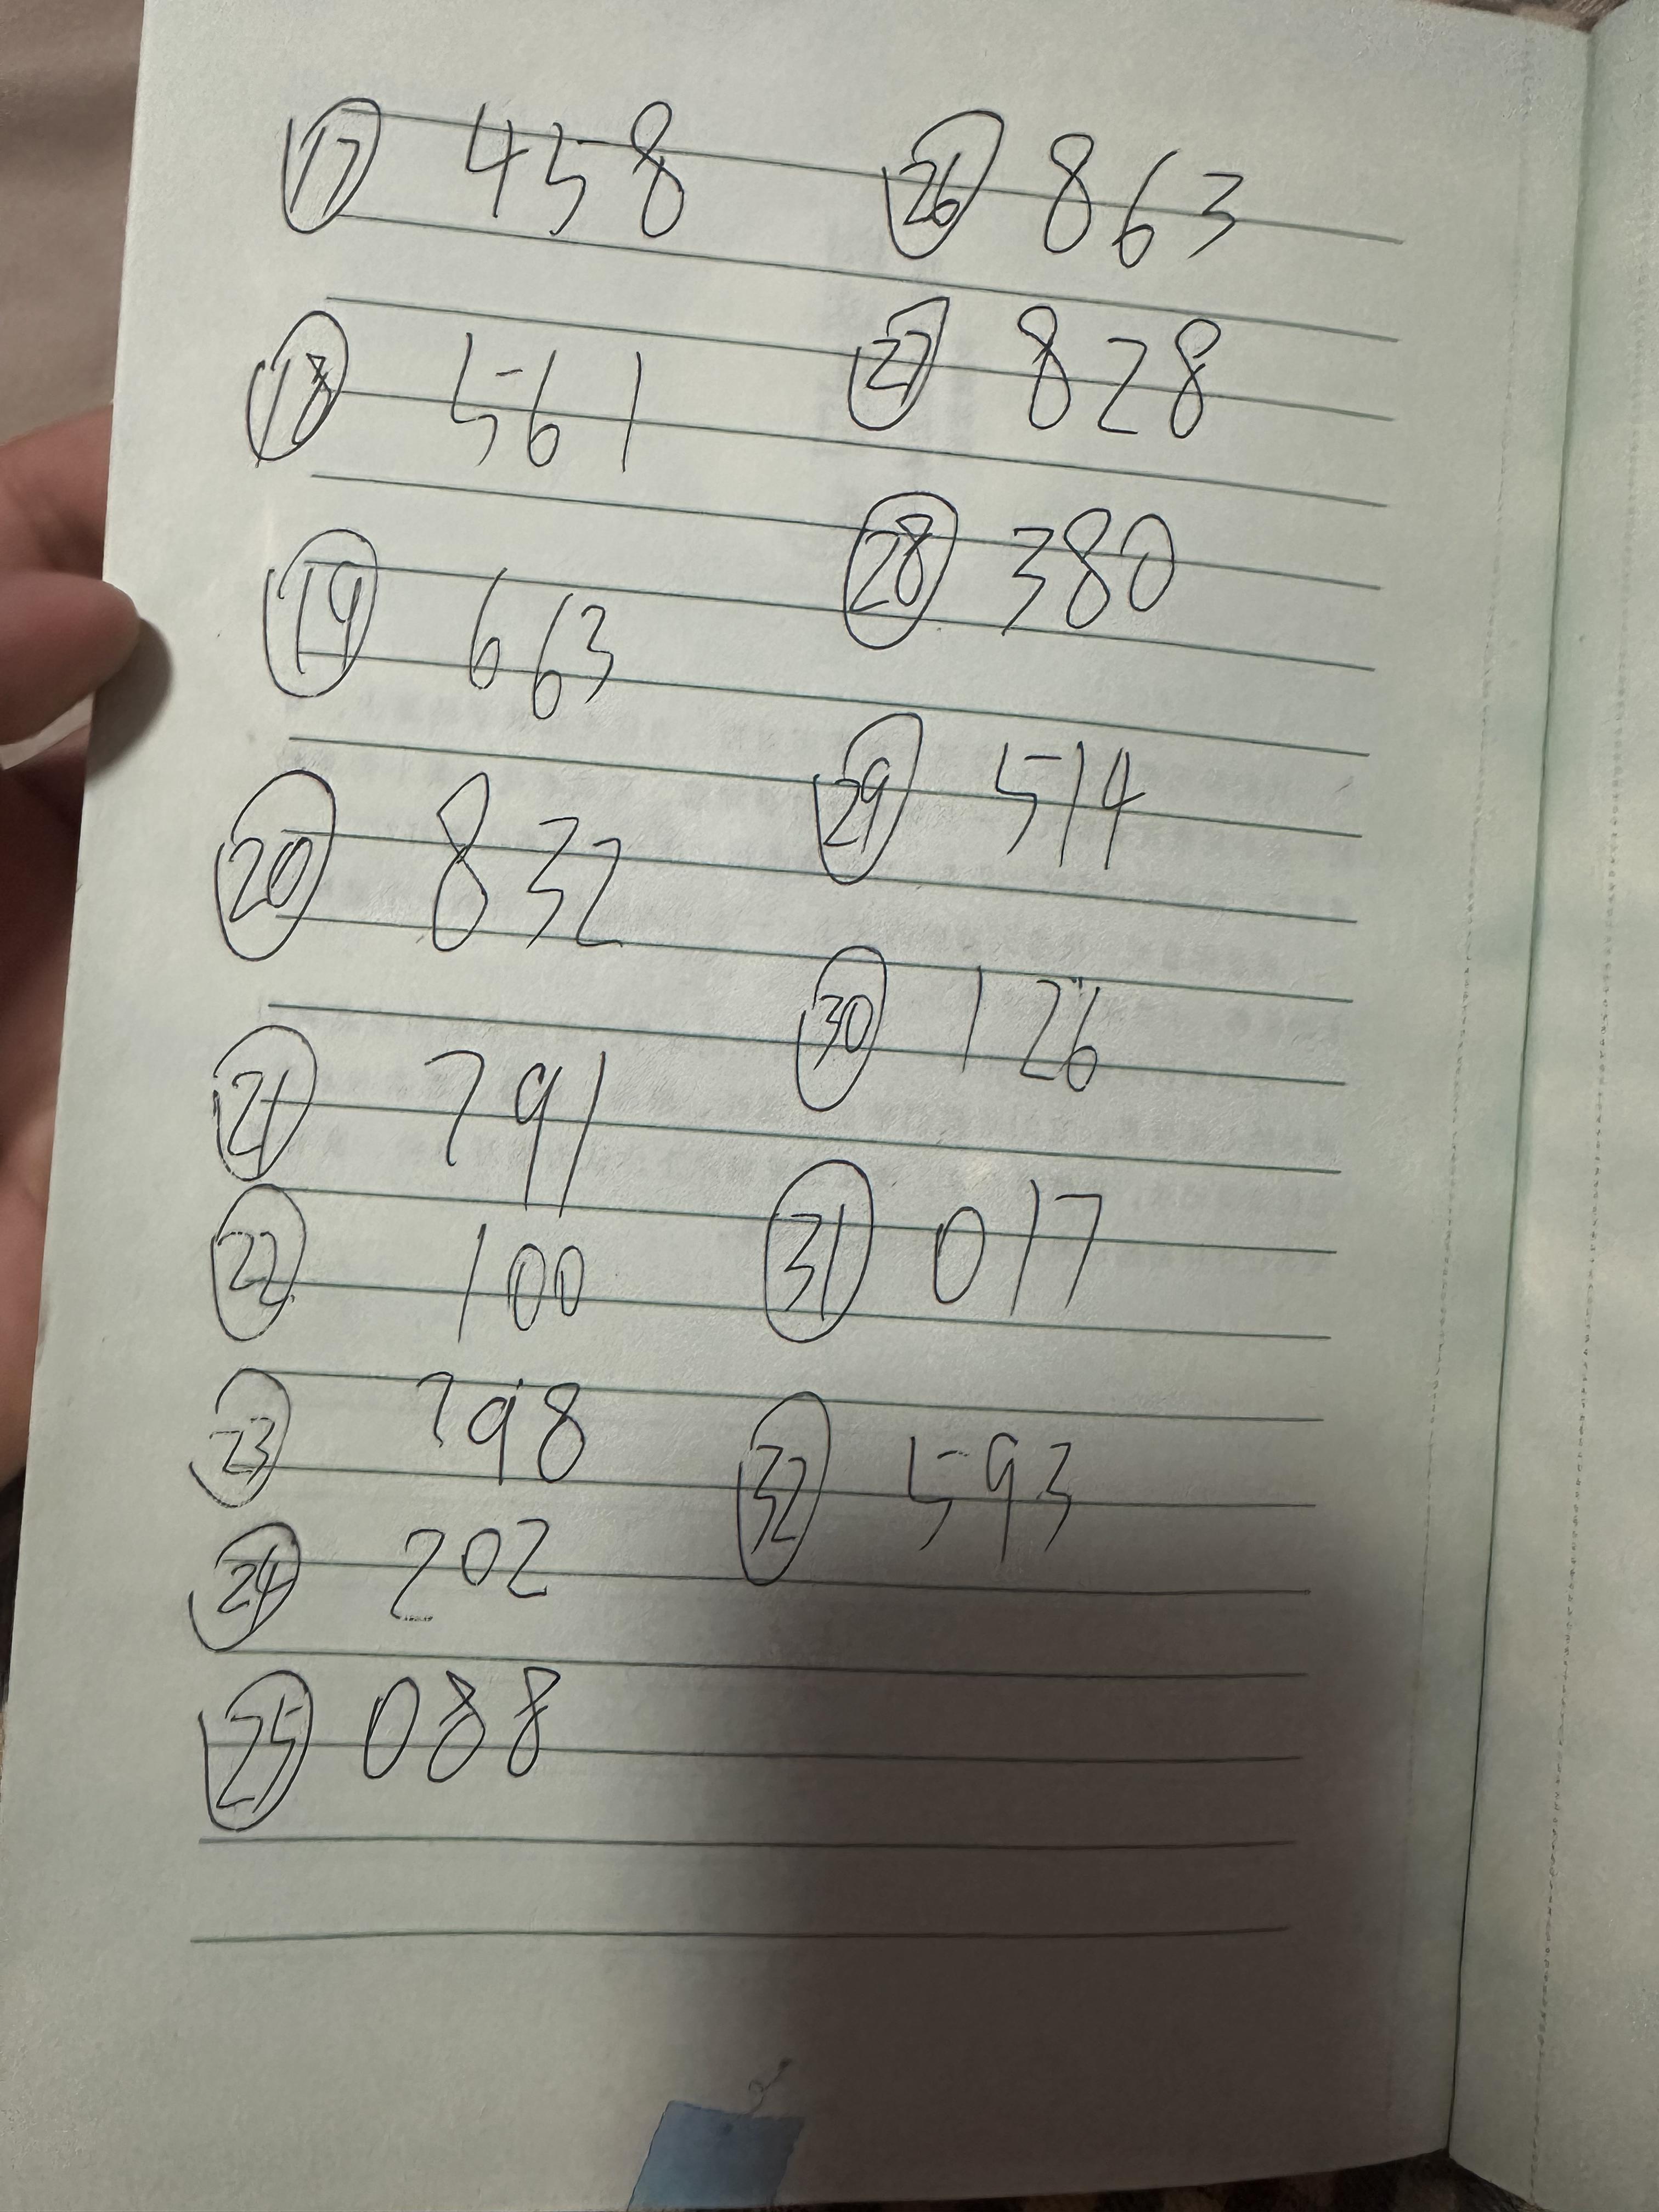 ⑰ 458
⑱ 561
⑲ 663
⑳ 832
㉑ 791
㉒ 100
㉓ 798
㉔ 202
㉕ 088
㉖ 863
㉗ 828
㉘ 380
㉙ 514
㉚ 126
㉛ 017
㉜ 593